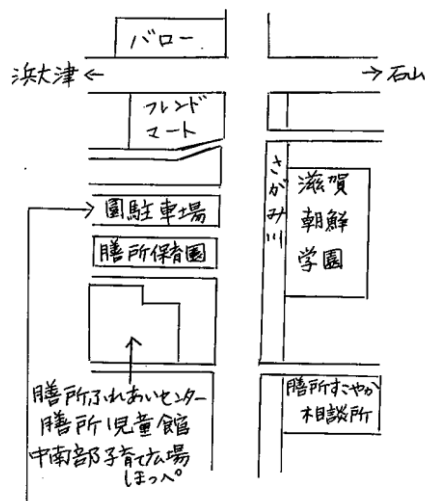 バロー
浜大津←
→石山
フレンド
マート
さがみ川
滋賀
朝鮮
学園
園駐車場
膳所保育園
膳所ふれあいセンター
膳所児童館
中南部子育て広場
ほっぺ
膳所すこやか
相談所